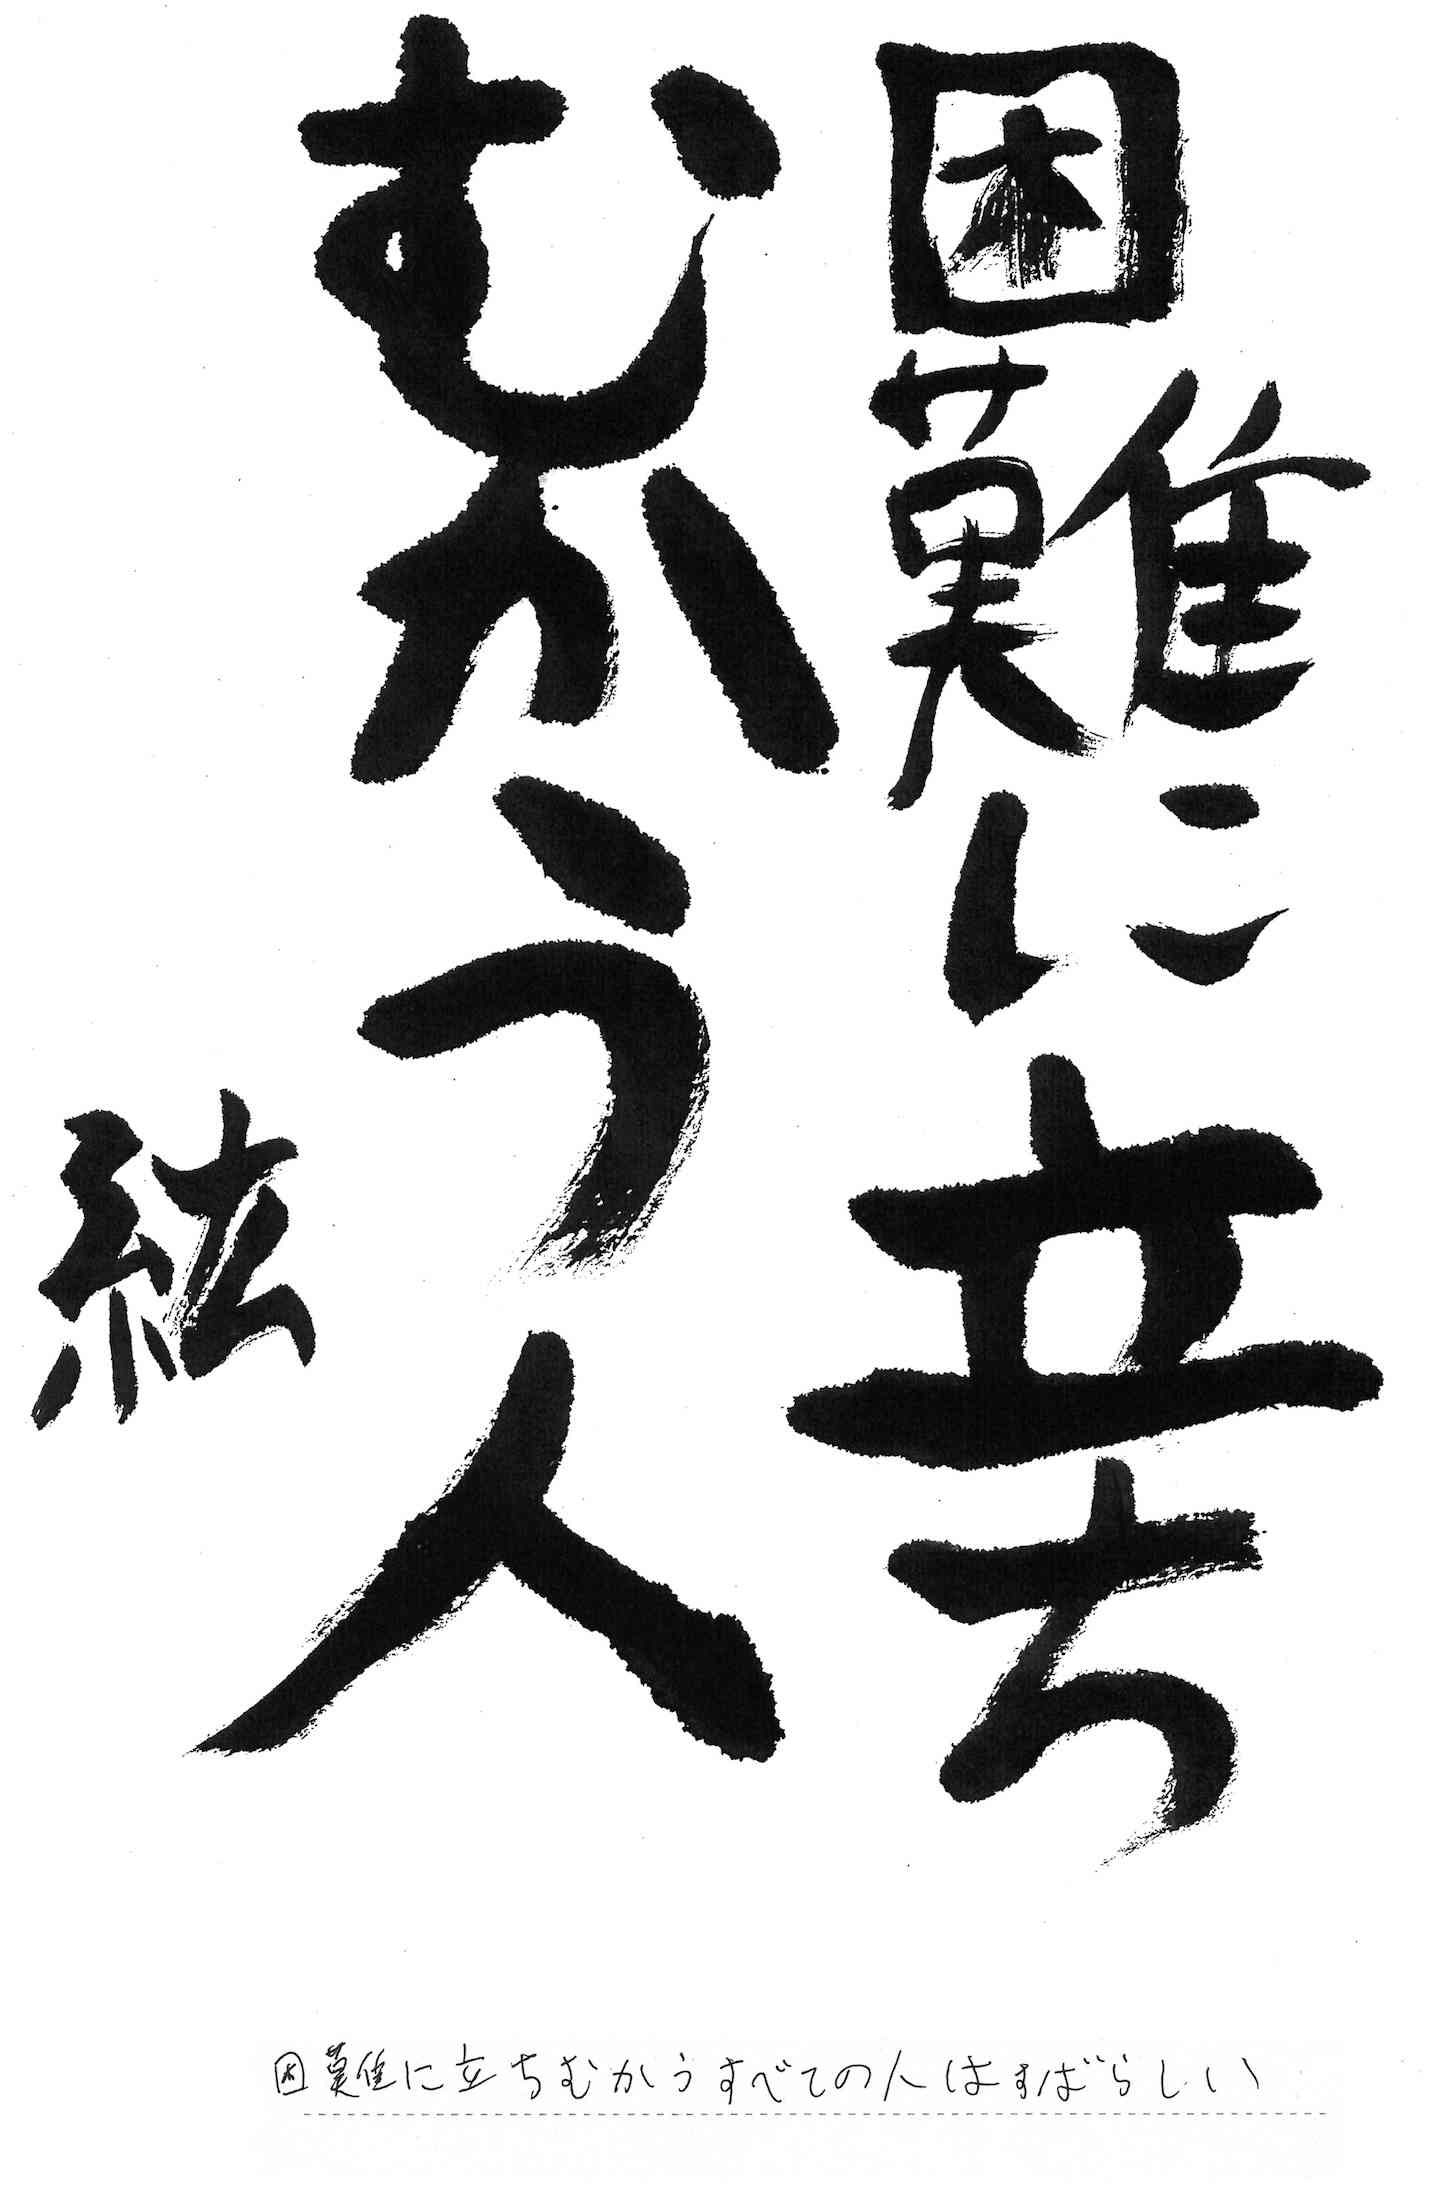 困難に立ち
むかう人
紘
困難に立ちむかうすべての人はすばらしい